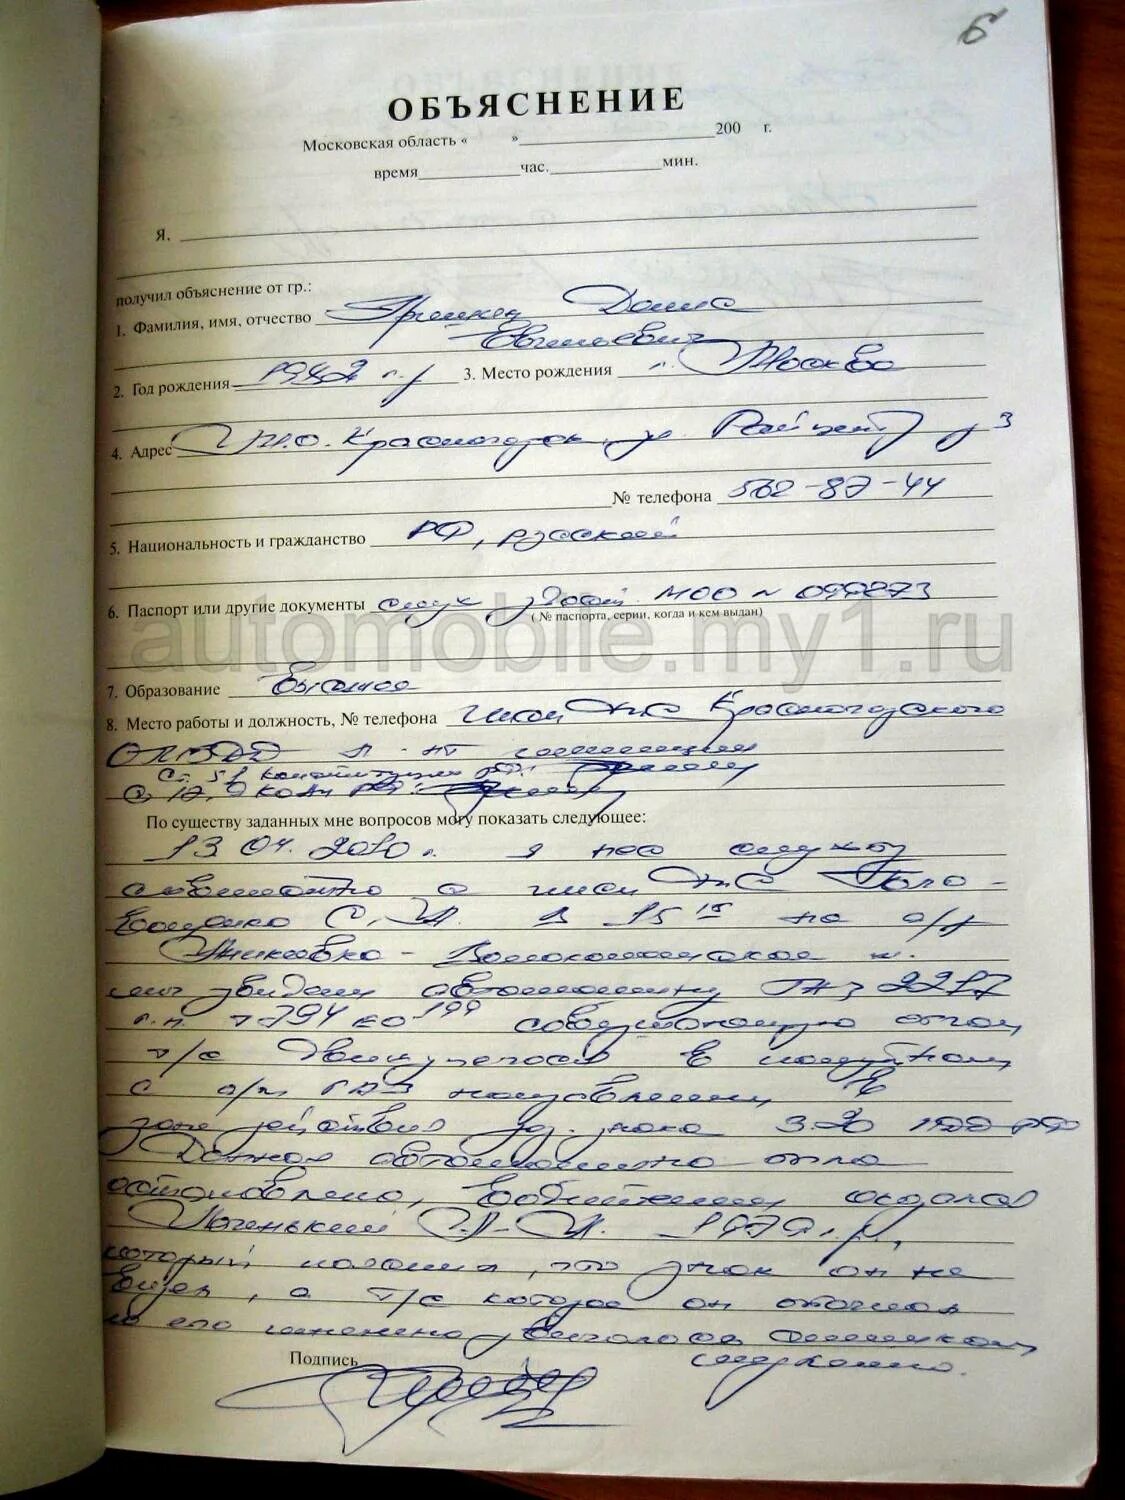 6
ОБЪЯСНЕНИЕ
Московская область « » 200 г.
время час. мин.
Я,
получил объяснение от гр.:
1. Фамилия, имя, отчество Денис
Евгеньевич
2. Год рождения г.р. 3. Место рождения г. Москва
4. Адрес М.О. Красногорск, ул. Райцентр, 3
№ телефона 562-87-44
5. Национальность и гражданство РФ, русский
6. Паспорт или другие документы служ. удост. МОО № 099873
( № паспорта, серии, когда и кем выдан)
automobile.my1.ru
7. Образование Высшее
8. Место работы и должность, № телефона инсп ДПС Красногорского
ОГИБДД л-нт милиции
Ст. 51 Конституции РФ:
Ст 17.9 КоАП РФ:
По существу заданных мне вопросов могу показать следующее:
13.04.2010 г. я нес службу
совместно с инсп ДПС Голо-
С. в 15 15 на а/д
Ильинское ш.
увидели автомашину ГАЗ 2217
г.н. 794 199 совершающую обгон
т/с движущегося в попутном
с а/м ГАЗ направлении в
зоне действия дор. знака 3.20 ПДД РФ
Данная автомашина была
остановлена, водителем оказался
г.р.,
который пояснил, что знак он не
видел, а т/с которое он обогнал
по его мнению двигалось слишком
медленно.
Подпись